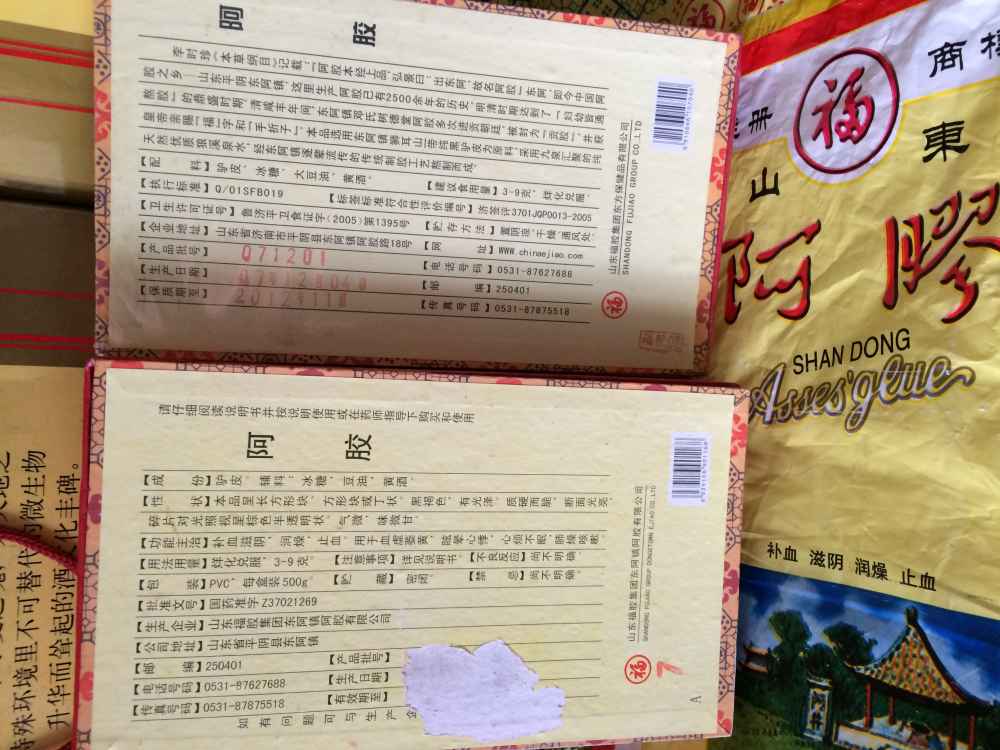 阿胶
李时珍《本草纲目》记载:“阿胶本经上品,弘景曰:出东阿,故名阿胶”。东阿,即今中国阿
胶之乡——山东平阴东阿镇,这里生产阿胶已有2500余年的历史,明清时期达到了“妇幼皆通
熬胶”的鼎盛时期,清咸丰年间,东阿镇邓氏树德堂阿胶多次进贡朝廷,被封为“贡胶”,并获
皇帝亲赐“福”字和“手折子”。本品选用东阿镇狮耳山带纯黑驴皮为原料,采用九泉汇聚的纯
天然优质狼溪泉水,经东阿镇逐辈流传的传统制胶工艺熬制而成。
【配料】驴皮、冰糖、大豆油、黄酒。
【执行标准】Q/01SFB019
【建议食用量】3-9克,烊化兑服
【卫生许可证号】鲁济平卫食证字(2005)第1395号
【标签标准符合性评价编号】济签评3701JQP0013-2005
【企业地址】山东省济南市平阴县东阿镇阿胶路18号
【贮存方法】置阴凉、干燥、通风处
【产品批号】071201
【网址】WWW chinaejiao.com
【生产日期】
【电话号码】0531-87627688
【保质期至】
【邮编】250401
【传真号码】0531-87875518
福
山东福胶集团东方保健品有限公司
SHANDONG FUJIAO GROUP CO.,LTD
请仔细阅读说明书并按说明使用或在药师指导下购买和使用
阿胶
【成份】驴皮。辅料:冰糖、豆油、黄酒。
【性状】本品呈长方形块、方形块或丁状。黑褐色,有光泽。质硬而脆,断面光亮,
碎片对光照视呈棕色半透明状。气微,味微甘。
【功能主治】补血滋阴,润燥,止血。用于血虚萎黄,眩晕心悸,心烦不眠,肺燥咳嗽。
【用法用量】烊化兑服。3-9克
【注意事项】详见说明书。
【不良反应】尚不明确。
【包装】PVC,每盒装500g。
【贮藏】密闭
【禁忌】尚不明确。
【批准文号】国药准字Z37021269
【生产企业】山东福胶集团东阿镇阿胶有限公司
【公司地址】山东省平阴县东阿镇
【邮编】250401
【产品批号】
【电话号码】0531-87627688
【生产日期】
【传真号码】0531-87875518
【有效期至】
如有问题可与生产企
福
山东福胶集团东阿镇阿胶有限公司
7
A
福
商
山東
阿膠
SHAN DONG
Asses'glue
补血 滋阴 润燥 止血
特殊环境里不可替代的微生物
升华而耸起的酒文化丰碑。